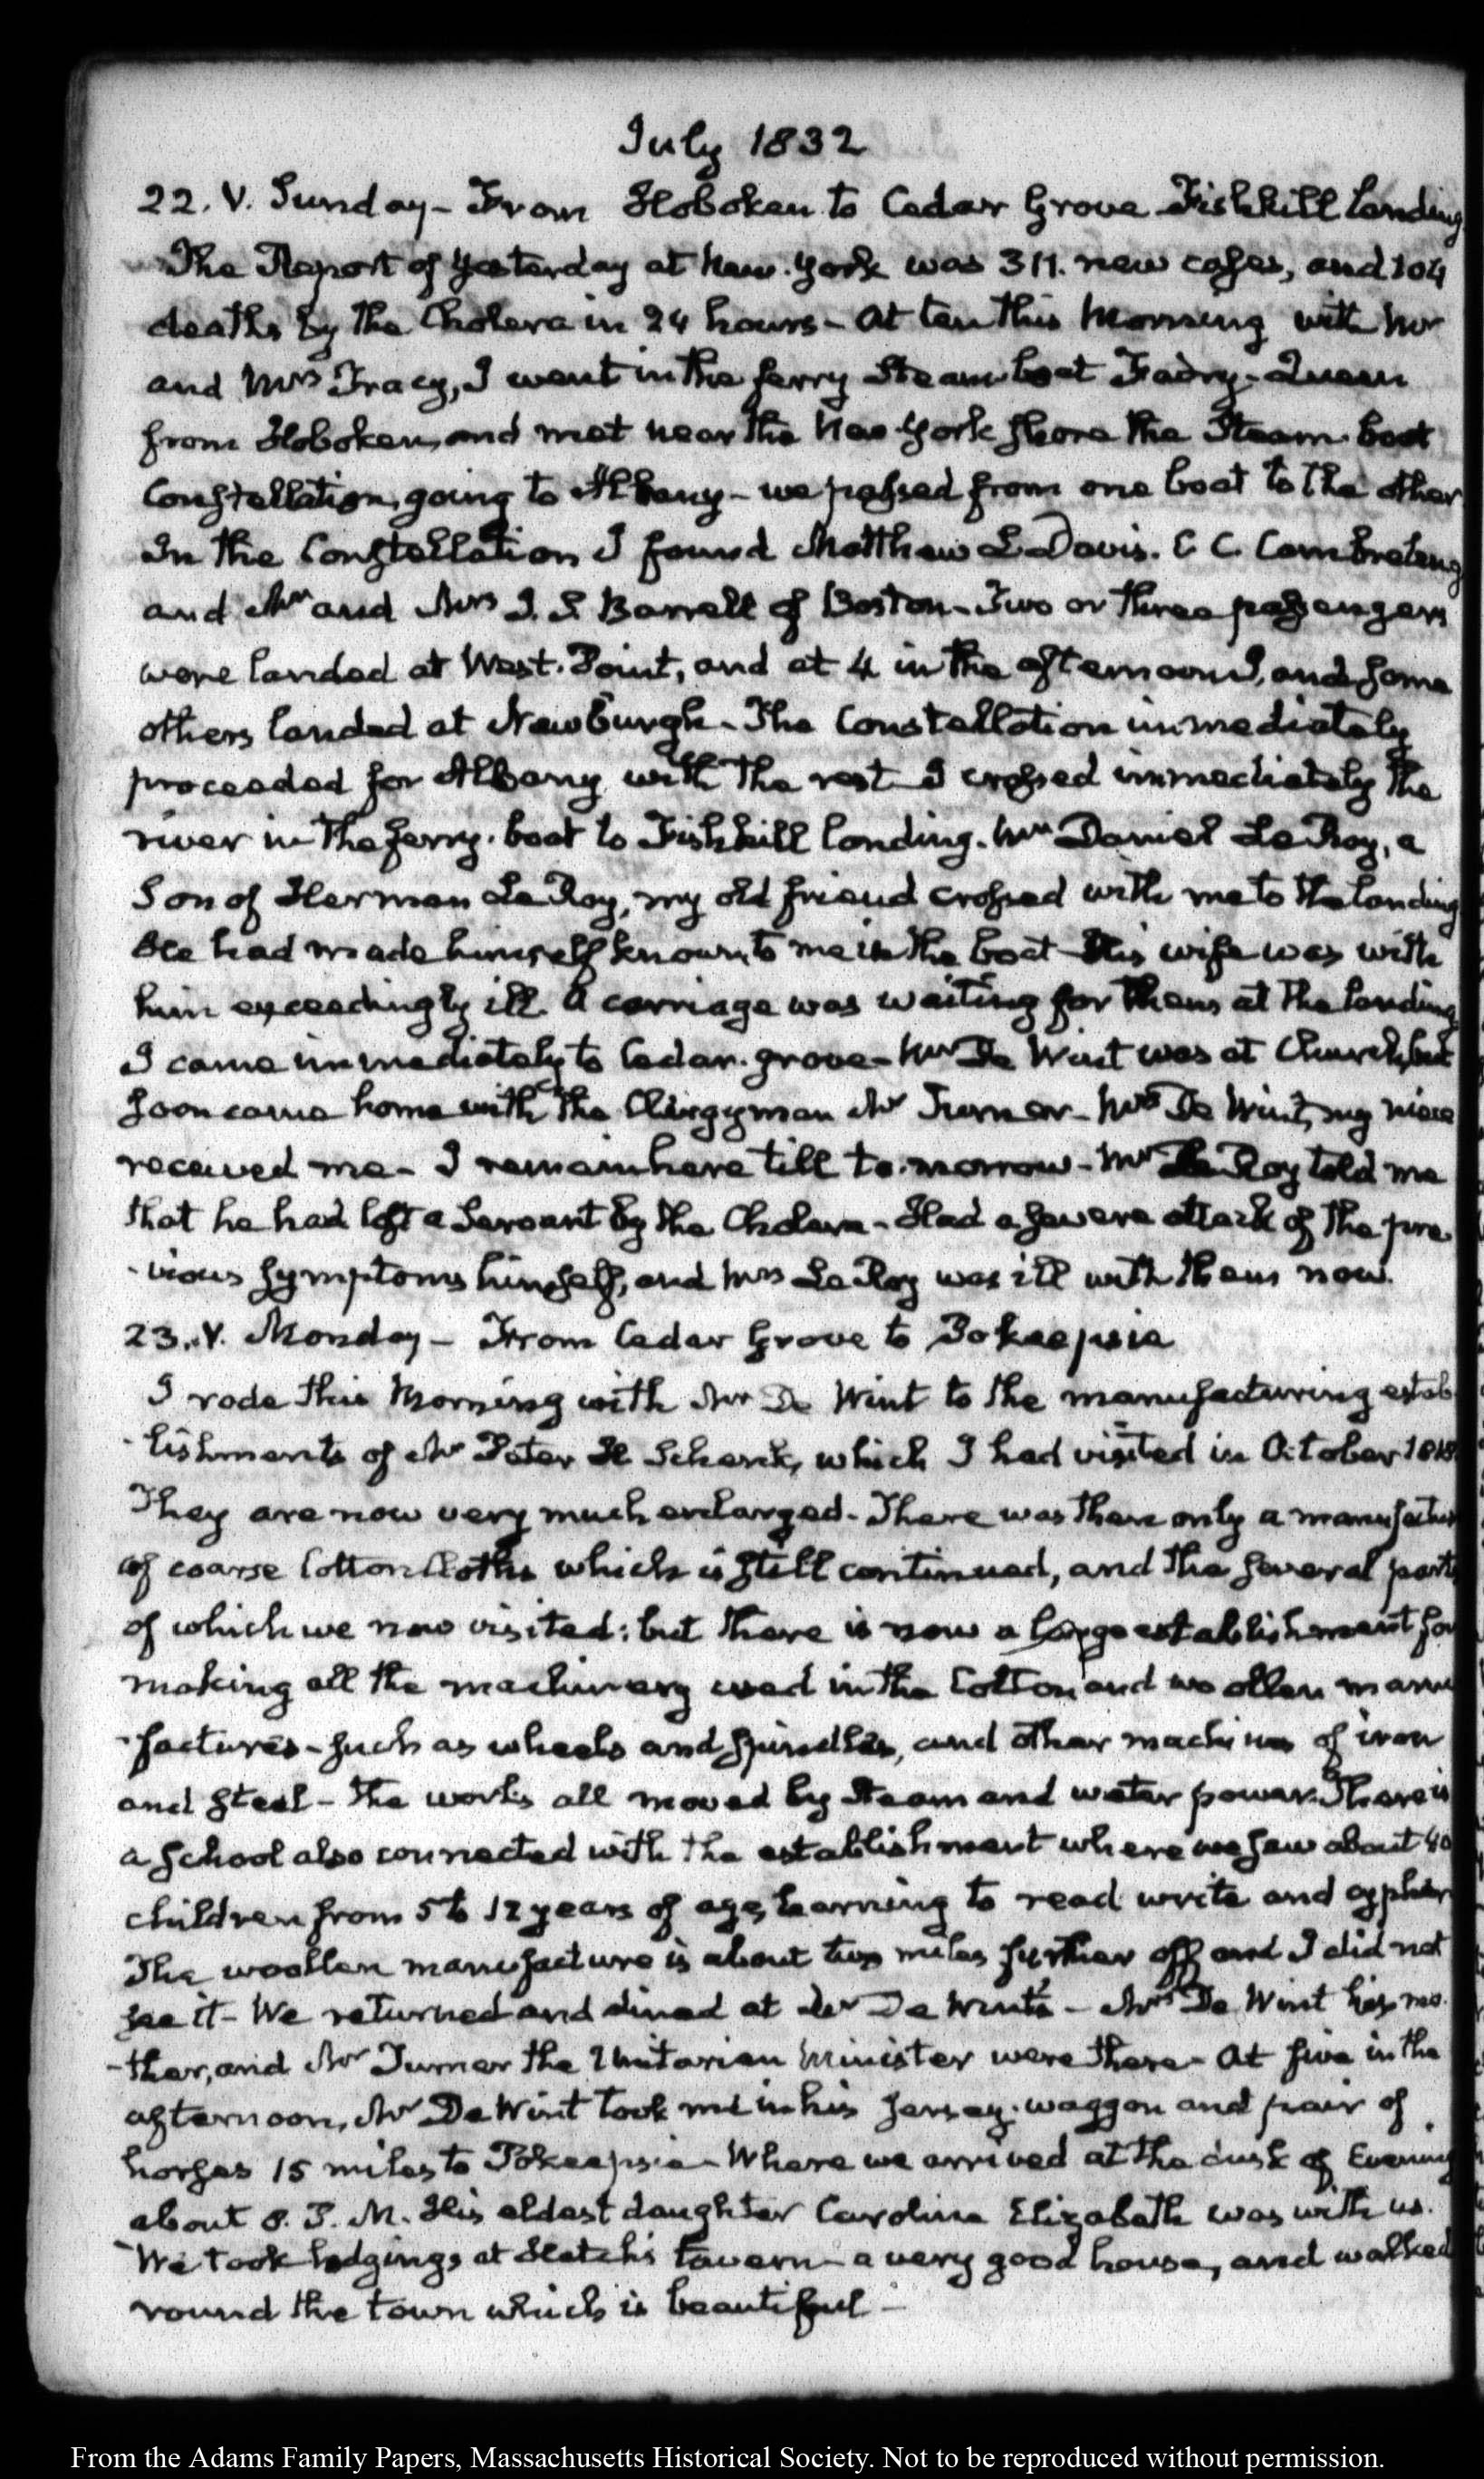 July 1832
22. V. Sunday - From Hoboken to Cedar Grove Fishkill Landing
The Report of yesterday at New-York was 311. new cases, and 104
deaths by the Cholera in 24 hours - At ten this Morning with Mr
and Mrs Tracy, I went in the ferry Steam boat Fairy-Queen
from Hoboken, and met near the New York shore the Steam-boat
Constellation, going to Albany - we passed from one boat to the other
In the Constellation I found Matthew L Davis. C. C. Cambreleng
and Mr and Mrs Barrell of Boston - Two or three passengers
were landed at West-Point, and at 4 in the afternoon I, and some
others landed at Newburgh - The Constellation immediately
proceeded for Albany with the rest - I crossed immediately the
river in the ferry-boat to Fishkill landing. Mr Daniel Le Roy, a
Son of Herman Le Roy, my old friend crossed with me to the landing
He had made himself known to me in the boat - His wife was with
him exceedingly ill. A carriage was waiting for them at the landing
I came immediately to Cedar-grove - Mr De Wint was at Church, but
soon came home with the Clergyman Mr Turner - Mrs De Wint, my niece
received me - I remain here till to-morrow - Mr Le Roy told me
that he had lost a Servant by the Cholera - Had a severe attack of the pre-
-vious symptoms himself, and Mrs Le Roy was ill with them now.
23. V. Monday - From Cedar Grove to Pokeepsie
I rode this Morning with Mr De Wint to the manufacturing estab-
-lishments of Mr Peter H Schenk, which I had visited in October 1818
They are now very much enlarged - There was then only a manufacture
of coarse Cotton Cloths which is still continued, and the several parts
of which we now visited: but there is now a large establishment for
making all the machinery used in the Cotton and woollen manu
-factures - such as wheels and spindles, and other machines of iron
and steel - The works all moved by Steam and water power. There is
a School also connected with the establishment where we saw about 40
children from 5 to 12 years of age, learning to read write and cypher
The woollen manufacture is about two miles further off and I did not
see it - We returned and dined at Mr De Wint's - Mrs De Wint his mo-
-ther, and Mr Turner the Unitarian Minister were there - At five in the
afternoon, Mr De Wint took me in his Jersey-waggon and pair of
horses 15 miles to Pokeepsie - Where we arrived at the dusk of Evening
about 8. P. M. His eldest daughter Caroline Elizabeth was with us.
We took lodgings at Hatch's tavern - a very good house, and walked
round the town which is beautiful -
From the Adams Family Papers, Massachusetts Historical Society. Not to be reproduced without permission.